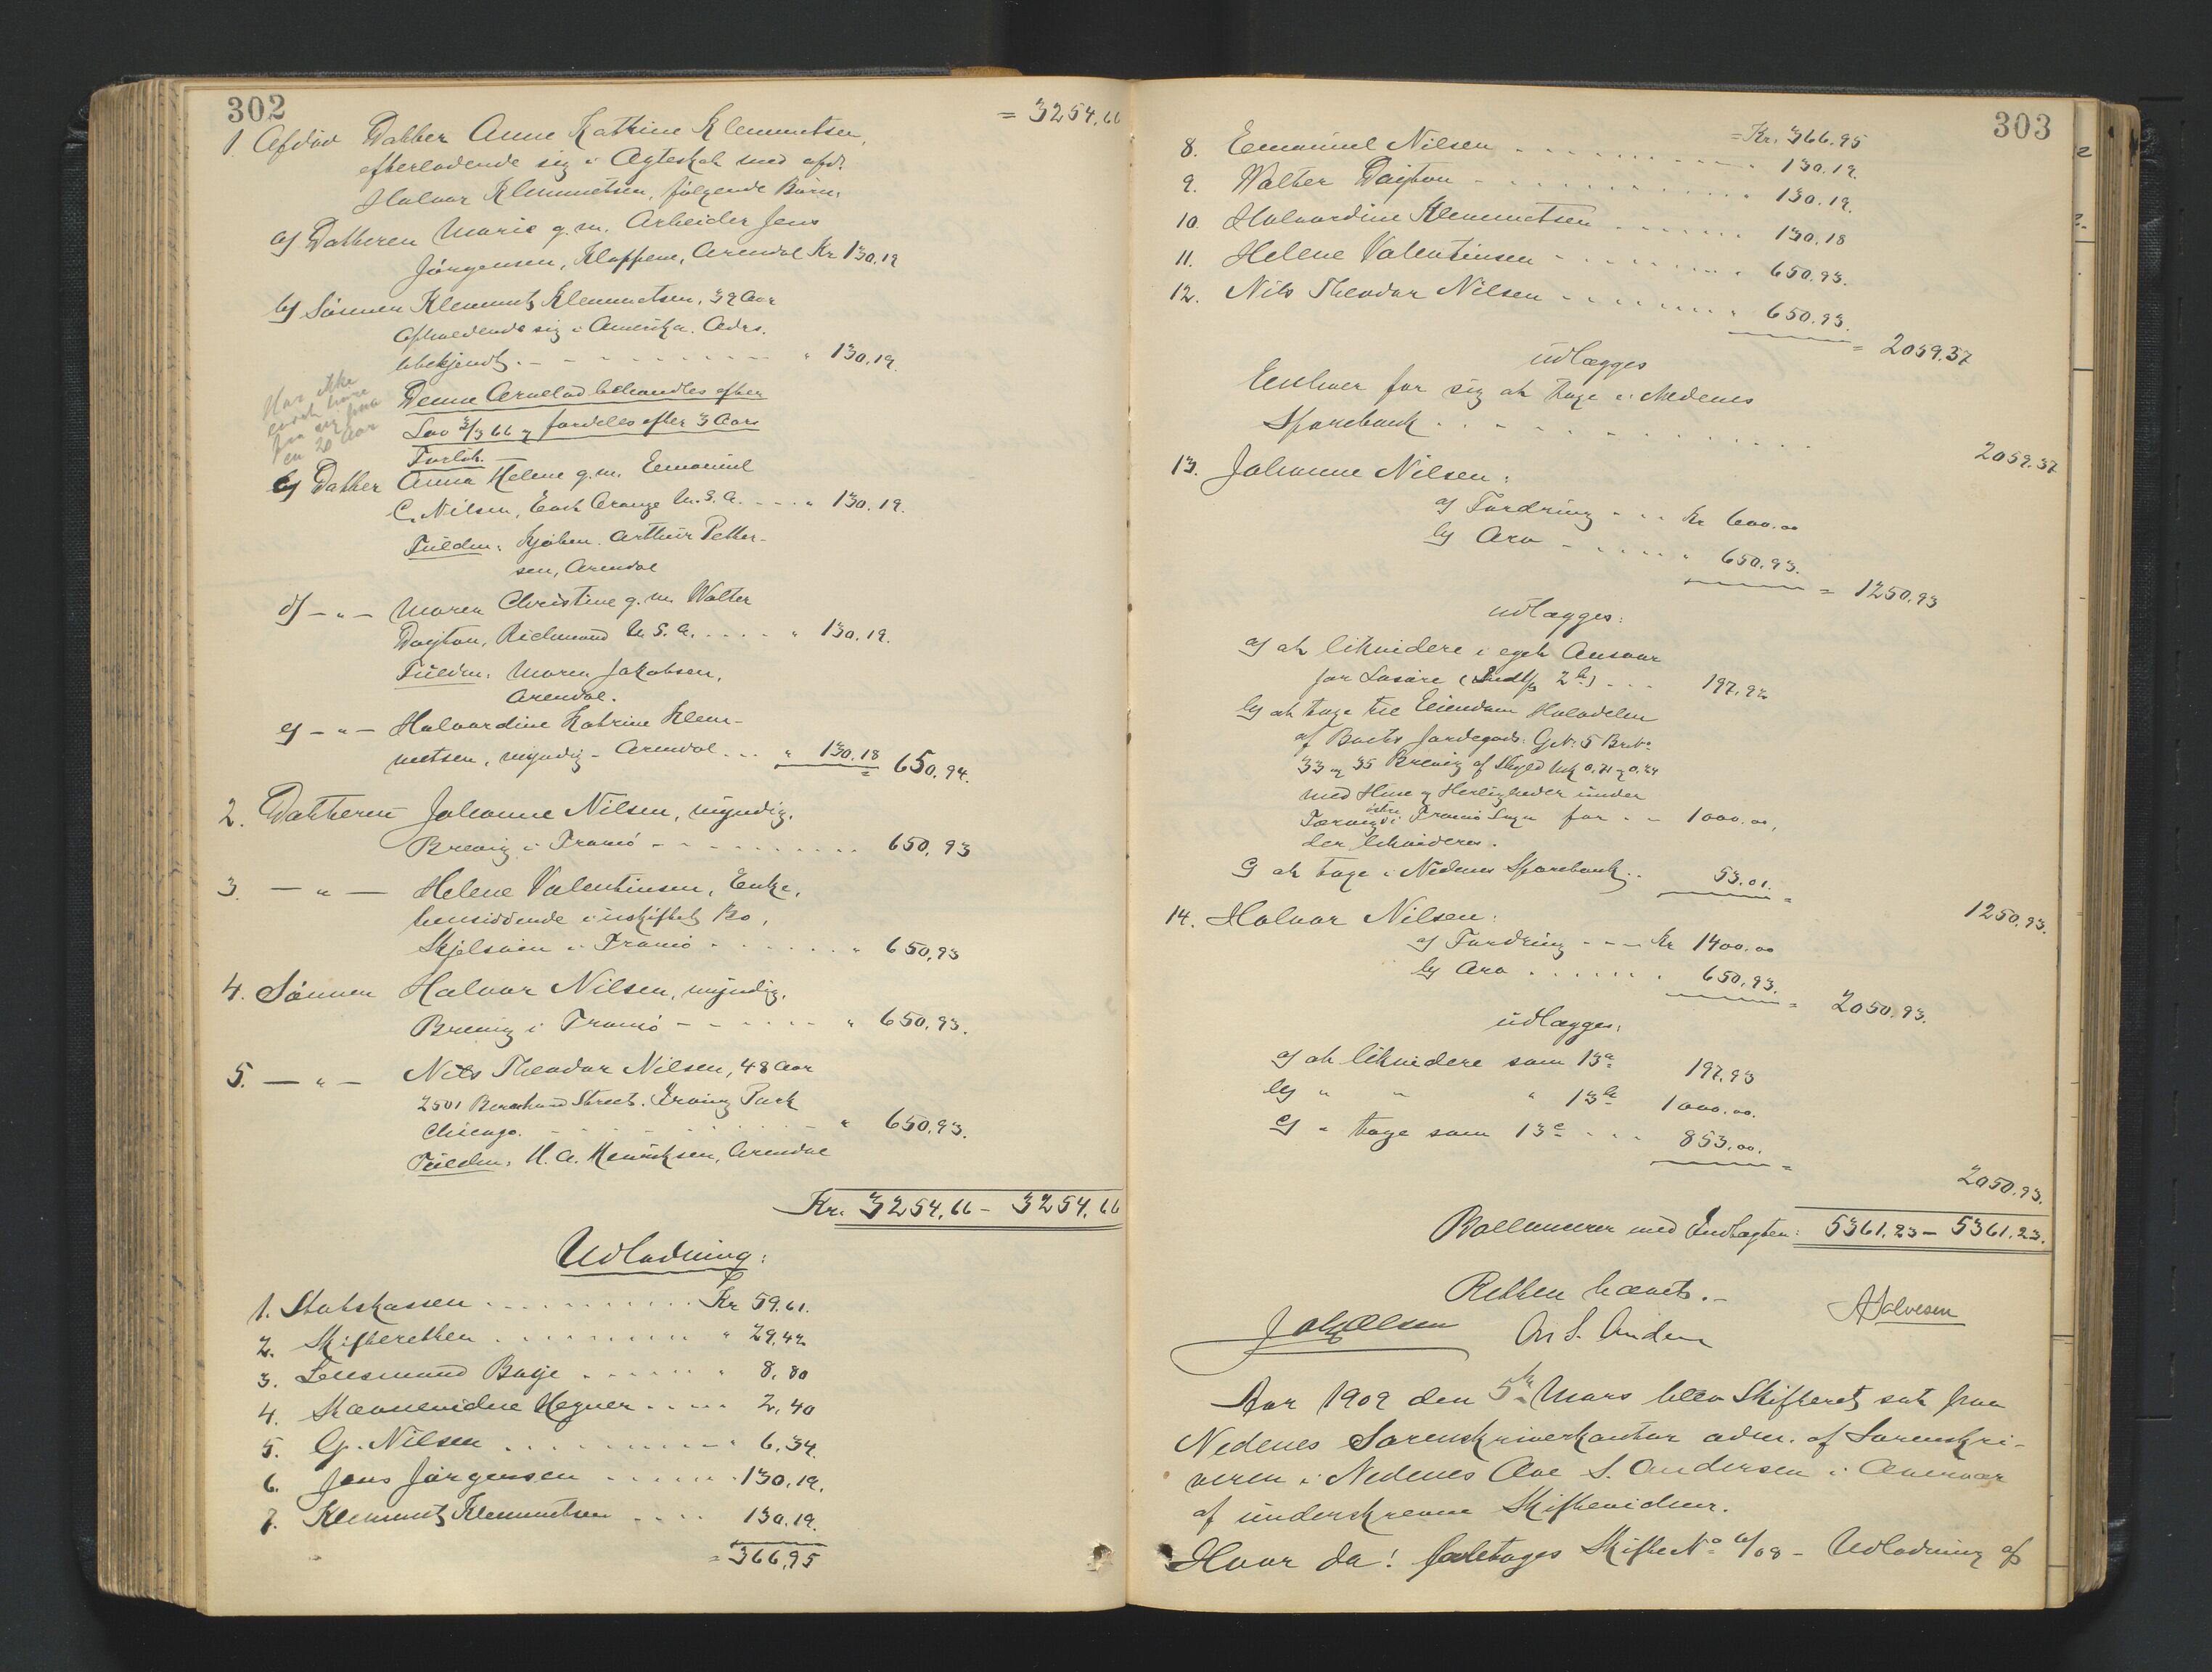 302
= 3254.66
1. Afdød Datter Anne Kathrine Klemmetsen,
efterladende sig i Ægteskab med afd.
Halvor Klemmetsen, følgende Børn:
a) Datteren Marie g. m. Arbeider Jens
Jörgensen, Kloppene, Arendal Kr 130.19
b) Sønnen Klemmet Klemmetsen, 39 Aar
opholdende sig i Amerika. Adrs.
ubekjendt. - - - " 130.19.
Har ikke
ladt høre
fra sig paa
en 20 Aar
Denne Arvelod behandles efter
Lov 3/3 66 og fordeles efter 3 Aars
Forløb.
c) Datter Anna Helene g. m. Emanuel
C. Nilsen, East Orange U.S.A. - - - " 130.19.
Fuldm: Kjøbm. Arthur Petter-
sen, Arendal
d) - " - Maren Christine g. m. Walter
Dayton, Richmond U.S.A. . . . . " 130.19.
Fuldm: Maren Jakobsen,
Arendal.
e) - " - Halvardine Katrine Klem-
metsen, myndig - Arendal . . . " 130.18 = 650.94.
2. Datteren Johanne Nilsen, myndig,
Brevig i Tromö - - - 650.93
3. - " - Helene Valentinsen, Enke,
hensiddende i uskiftet Bo,
Skjelsvien i Tromö . . . " 650.93
4. Sønnen Halvor Nilsen, myndig,
Brevig i Tromö - - - " 650.93.
5. - " - Nils Theodor Nilsen, 48 Aar
2501 Street. Irving Park
Chicago. - - - " 650.93.
Fuldm: H. A. Henriksen, Arendal
Kr. 3254.66 - 3254.66
Udlodning:
1. Statskassen . . . Kr 59.61.
2. Skifteretten . . . " 29.42
3. Lensmand Bøije . . . " 8.80
4. Stævnevidne Hegner . . . 2.40
5. G. Nilsen . . . " 6.34.
6. Jens Jörgensen . . . " 130.19.
7. Klemmet Klemmetsen . . . 130.19.
= 366.95
303
= Kr. 366.95
8. Emanuel Nilsen . . . " 130.19.
9. Walter Dayton - . . . " 130.19.
10. Halvardine Klemmetsen . . . " 130.18
11. Helene Valentinsen . . . " 650.93.
12. Nils Theodor Nilsen . . . " 650.93.
= 2059.37
udlægges
Enhver for sig at tage i Nedenes
Sparebank . . . 2059.37
13. Johanne Nilsen:
a) Fordring - . . Kr 600.00
b) Arv - . . . " 650.93.
= 1250.93
udlægges:
a) at likvidere i eget Ansvar
for Løsøre (Indt/p 2 b) . . . 197.92
b) at tage til Eiendom Halvdelen
af Boets Jordegods: GNo: 5 BrNo:
33 og 35 Brevig af Skyld Mk 0,71 og 0,24
med Huse og Herligheder under
østre
i Tromö Sogn for - - 1000.00,
der likvideres.
c) at tage i Nedenes Sparebank . . 53.01. =
1250.93.
14. Halvor Nilsen:
a) Fordring - - - Kr 1400.00
b) Arv . . . . 650.93. = 2050.93.
udlægges:
a) at likvidere som 13 a 197.93
b) " " " 13 b 1000.00.
c) " tage som 13 c . . . 853.00. =
2050.93.
Ballancerer med Indtægten: 5361.23 - 5361.23.
Retten hævet. -
Joh. Olsen On S. Andersen A Salvesen
Aar 1909 den 5te Mars blev Skifteret sat paa
Nedenes Sorenskriverkontor adm. af Sorenskri-
veren i Nedenes Ove S. Andersen i Overvær
af underskrevne Skiftevidner.
Hvor da! foretoges Skifte No 61/08 - Udlodning af